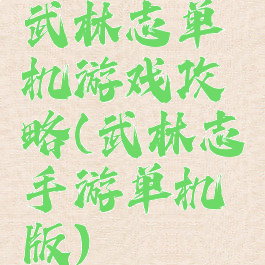 武林志单
机游戏攻
略(武林志
手游单机
版)